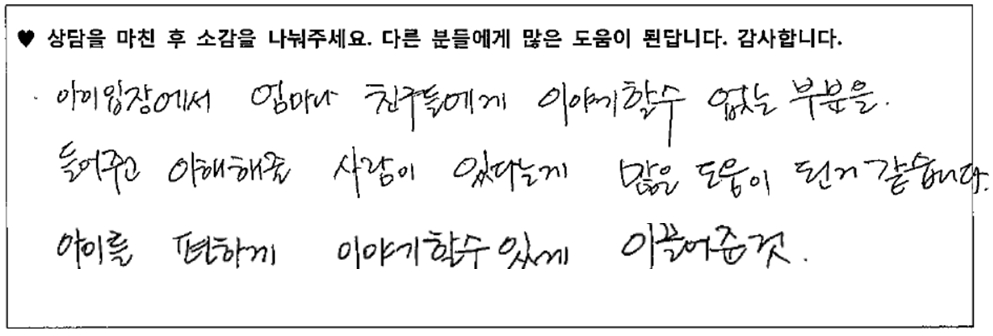 ♥ 상담을 마친 후 소감을 나눠주세요. 다른 분들에게 많은 도움이 된답니다. 감사합니다.
아이입장에서 엄마나 친구들에게 이야기할수 없는 부분을.
들어주고 이해해줄 사람이 있다는게 많은 도움이 된거 같습니다.
아이를 편하게 이야기할수있게 이끌어준것.